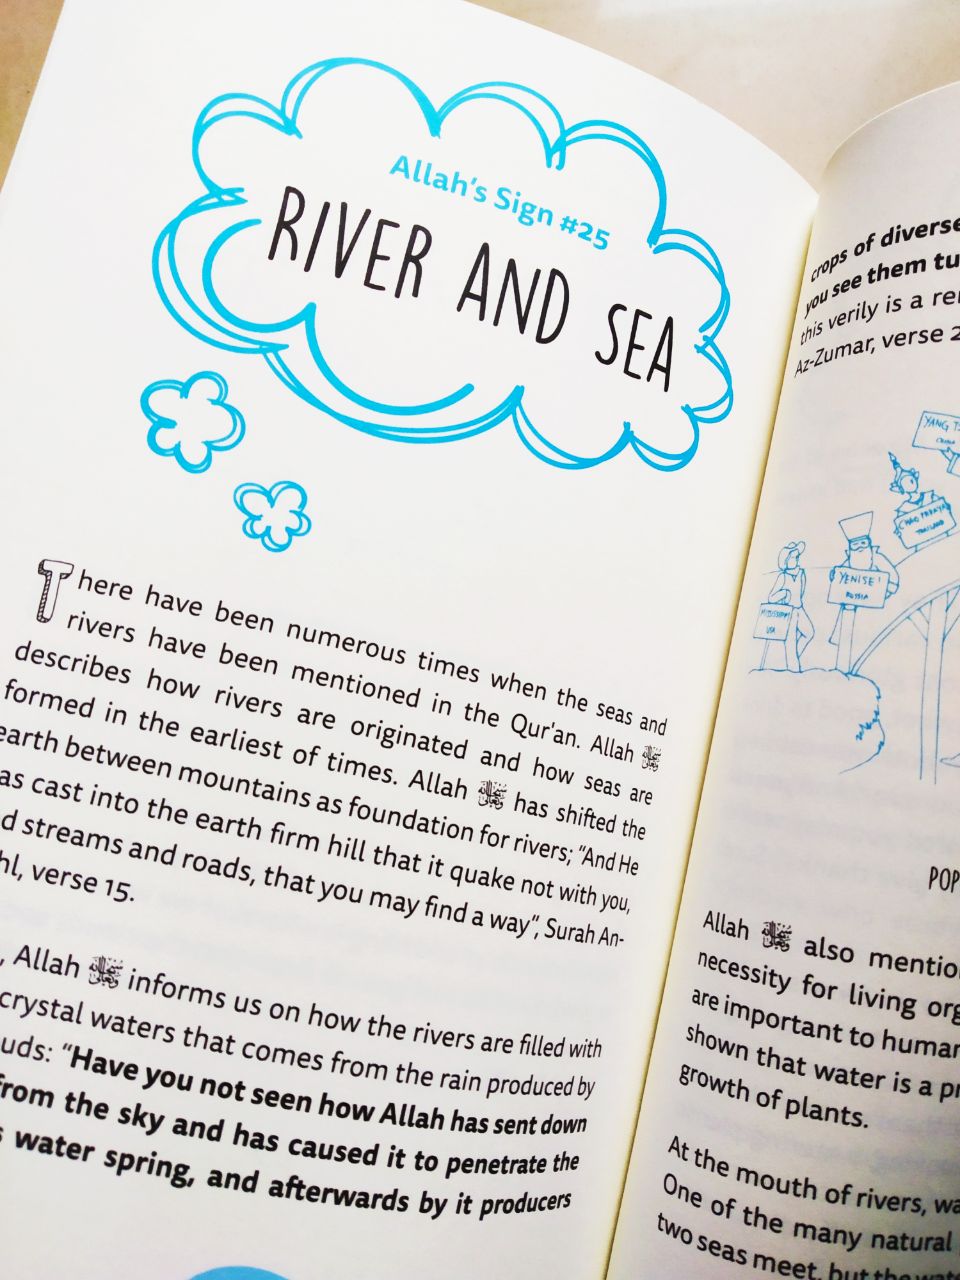 Allah's Sign #25
RIVER AND SEA
There have been numerous times when the seas and
rivers have been mentioned in the Qur'an. Allah ﷻ
describes how rivers are originated and how seas are
formed in the earliest of times. Allah ﷻ has shifted the
earth between mountains as foundation for rivers; "And He
as cast into the earth firm hill that it quake not with you,
d streams and roads, that you may find a way", Surah An-
hl, verse 15.
, Allah ﷻ informs us on how the rivers are filled with
crystal waters that comes from the rain produced by
uds: "Have you not seen how Allah has sent down
from the sky and has caused it to penetrate the
s water spring, and afterwards by it producers
crops of diverse
you see them tu
this verily is a re
Az-Zumar, verse 2
YANG T
CHINA
THAILAND
YENISEI
RUSSIA
MISSISSIPPI
USA
POP
Allah ﷻ also mentio
necessity for living org
are important to human
shown that water is a pr
growth of plants.
At the mouth of rivers, wa
One of the many natural
two seas meet, but the wat